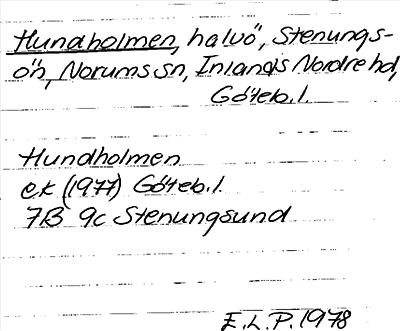 Hundholmen, halvö, Stenungs-
ön, Norums sn, Inlands Nordre hd,
Göteb. l.
Hundholmen
ek (1977) Göteb. l.
7B 9c Stenungsund
E.L.P. 1978